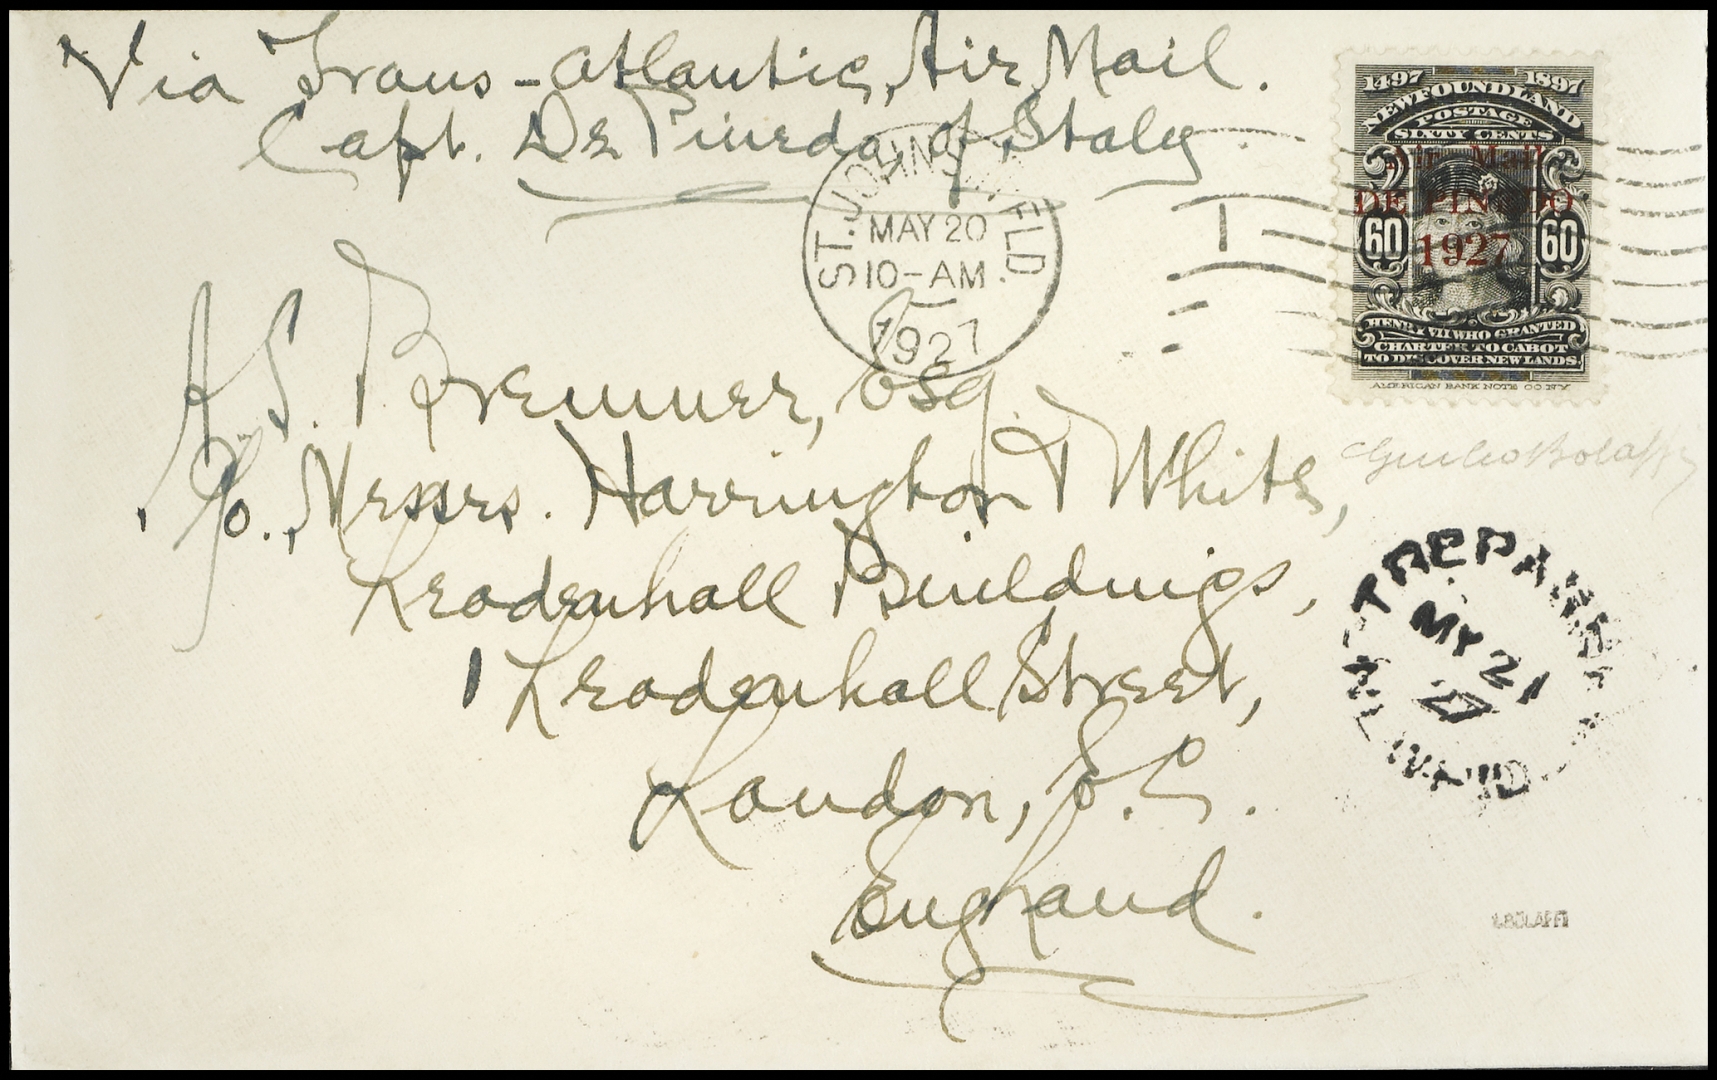 Via Trans-atlantic, Air Mail.
Capt. De Pineda of Italy
ST. JOHN'S, NFLD.
MAY 20
10-AM
1927
1497 1897
NEWFOUNDLAND
POSTAGE
SIXTY CENTS
Air Mail
DE PINEDO
1927
60 60
HENRY VII WHO GRANTED
CHARTER TO CABOT
TO DISCOVER NEW LANDS.
AMERICAN BANK NOTE CO. N.Y.
A. S. Bremner, Esq.
c/o. Messrs. Harrington & White,
Leadenhall Buildings,
1 Leadenhall Street,
London, E.C.
England.
Giulio Bolaffi
TREPASSEY
MY 21
27
NFLAND
G.BOLAFFI